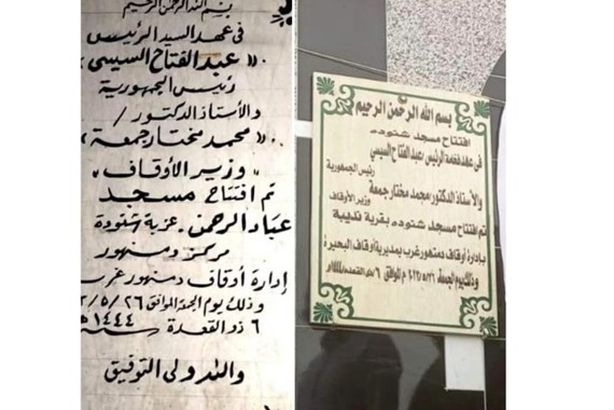 بسم الله الرحمن الرحيم
فى عهد السيد الرئيس
"عبد الفتاح السيسى"
رئيس الجمهورية
والأستاذ الدكتور /
"محمد مختار جمعة"
"وزير الأوقاف"
تم افتتاح مسجد
عباد الرحمن . عزبة شنودة
مركز دمنهور
إدارة أوقاف دمنهور غرب
وذلك يوم الجمعة الموافق ٢/٥/٢٦
٦ ذو القعدة سنة ١٤٤٤
والله ولى التوفيق
بسم الله الرحمن الرحيم
افتتاح مسجد شنوده
فى عهد فخامة الرئيس /عبد الفتاح السيسي
رئيس الجمهورية
والأستاذ الدكتور/محمد مختار جمعة
وزير الأوقاف
تم افتتاح مسجد شنوده بقرية
بإدارة أوقاف دمنهور غرب بمديرية أوقاف البحيرة
وذلك يوم الجمعة ٢٠٢٣/٥/٢٦ م الموافق ٦/ذى القعدة/